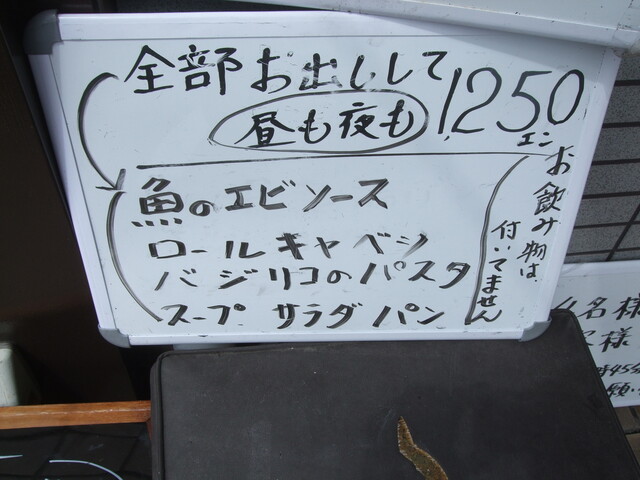 全部お出しして 1,250エン
昼も夜も
魚のエビソース
ロールキャベシ
バジリコのパスタ
スープ サラダ パン
お飲み物は、
付いてません
名様
様